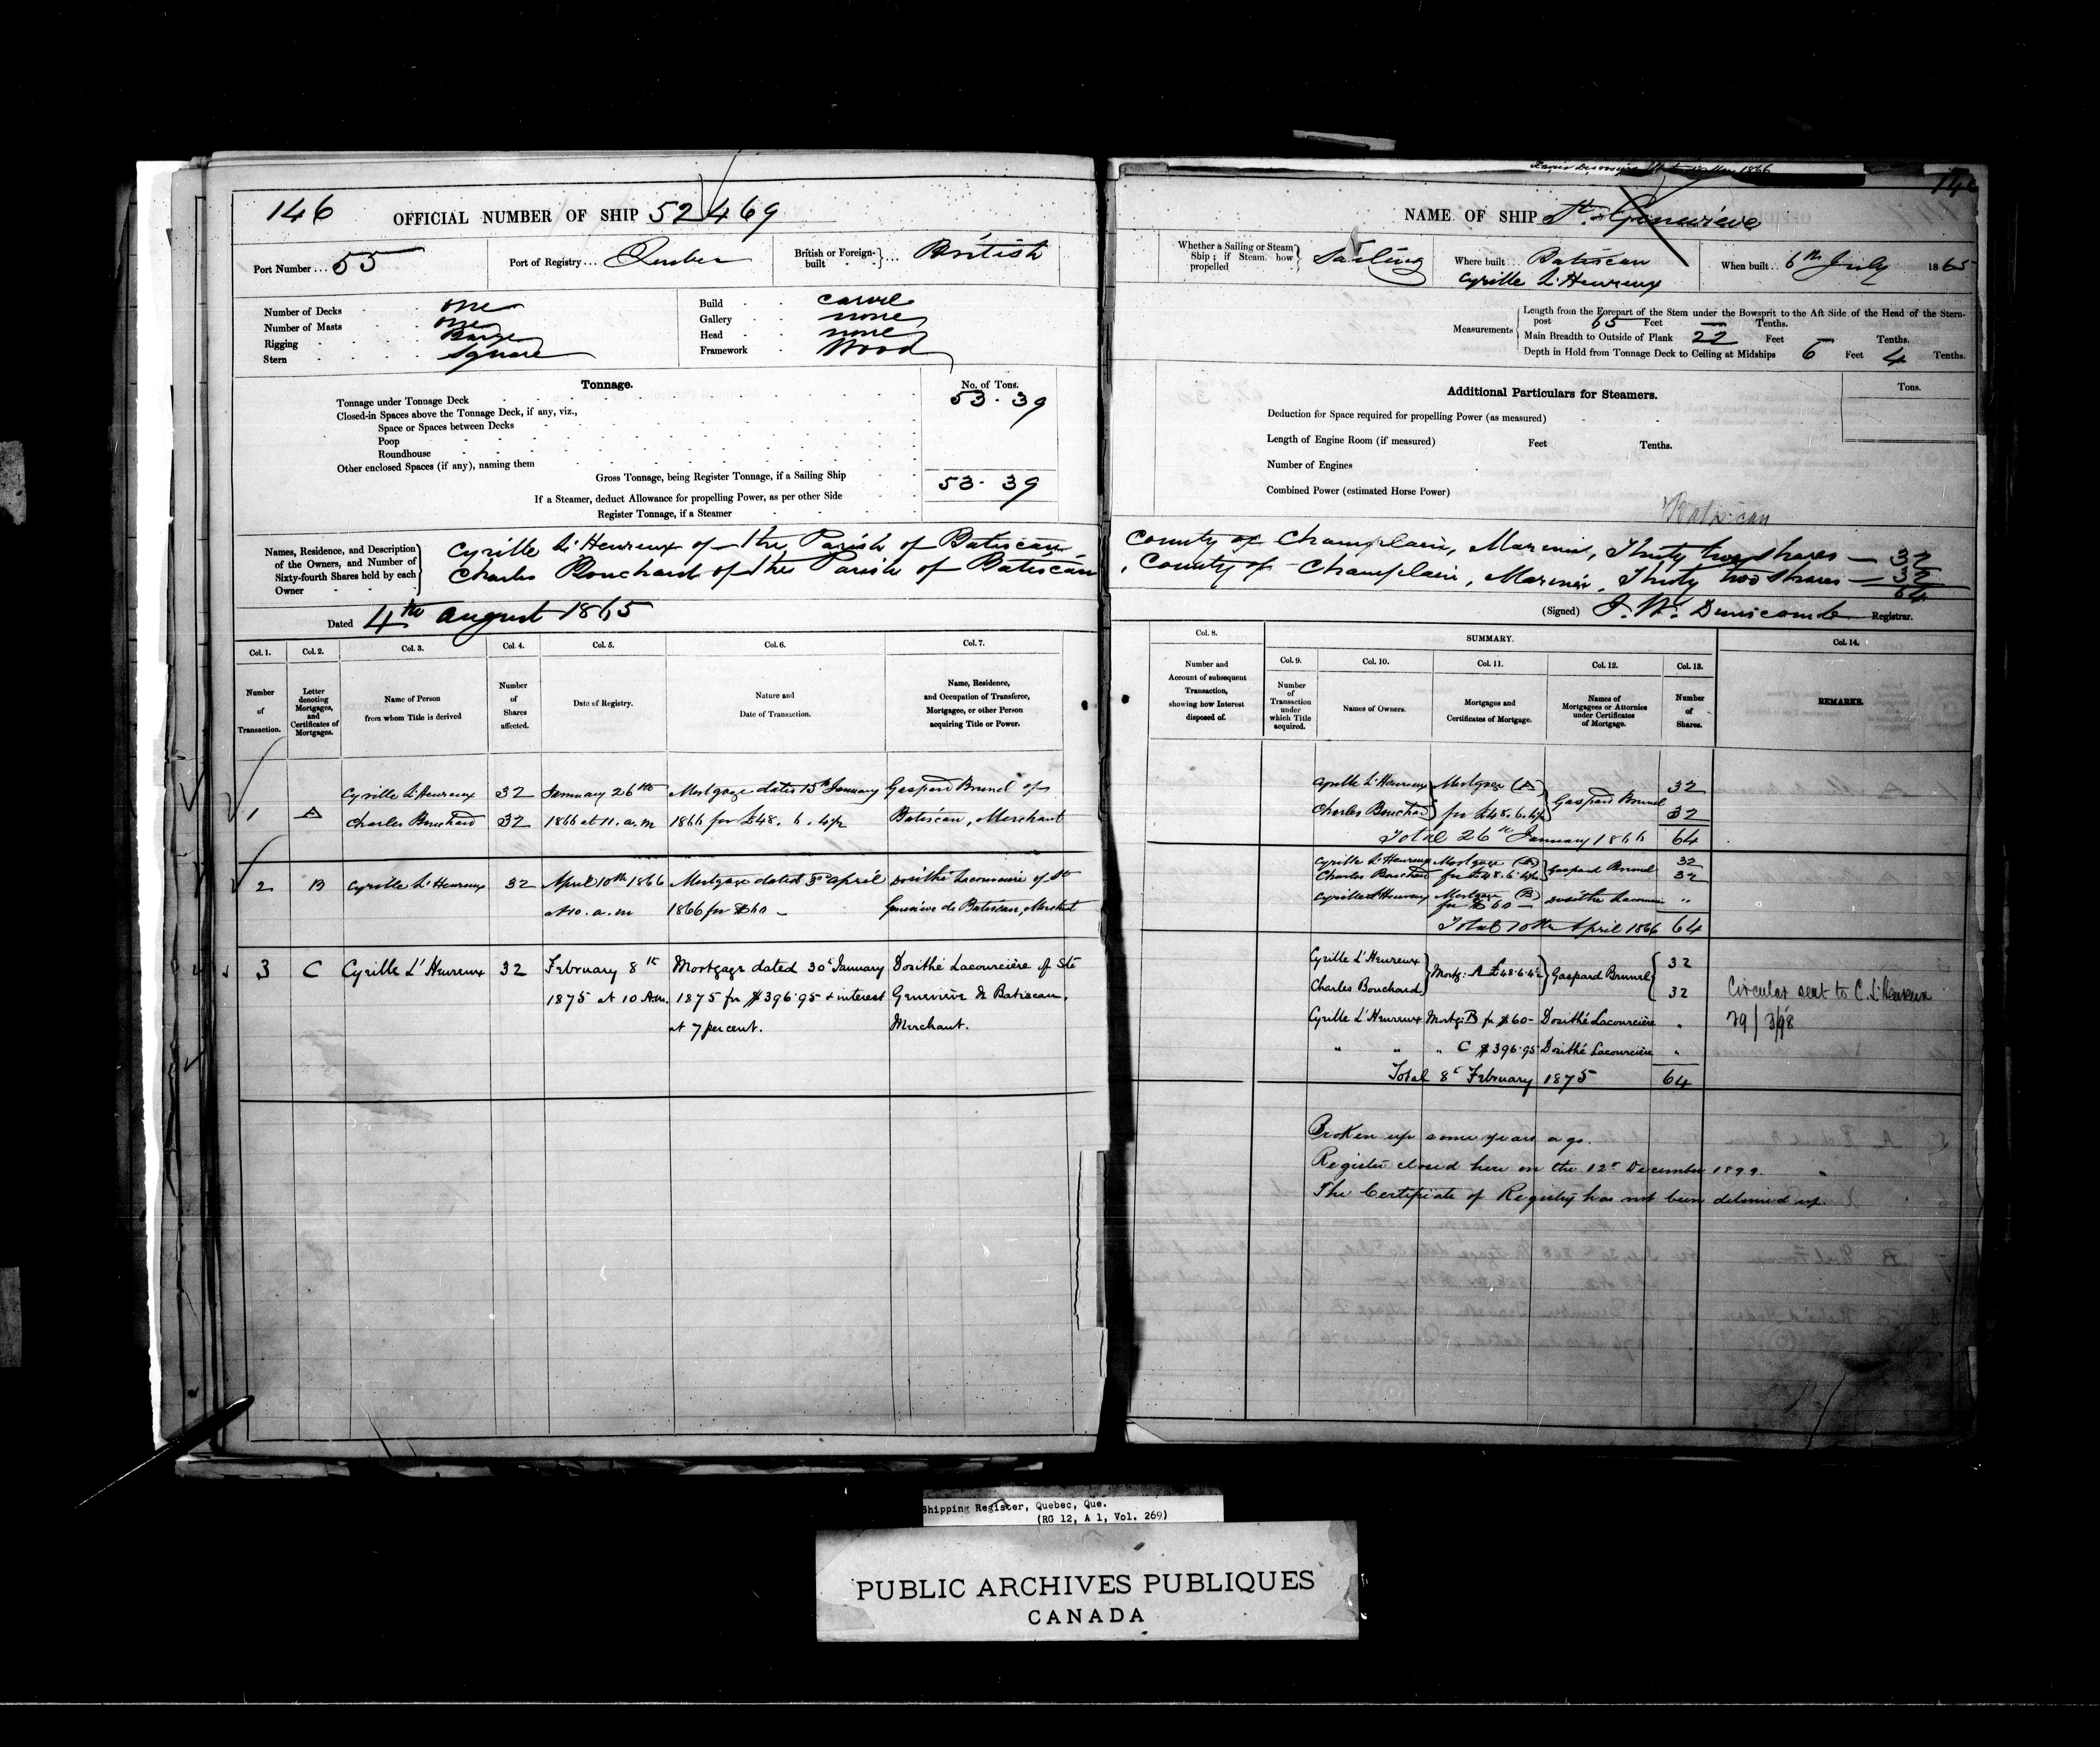 146
OFFICIAL NUMBER OF SHIP 52469
Port Number... 55
Port of Registry... Quebec
British or Foreign-built } ... British
Number of Decks one
Number of Masts one
Rigging Barge
Stern Square
Build carvel
Gallery none
Head none
Framework Wood
Tonnage.
No. of Tons.
Tonnage under Tonnage Deck 53. 39
Closed-in Spaces above the Tonnage Deck, if any, viz.,
Space or Spaces between Decks
Poop
Roundhouse
Other enclosed Spaces (if any), naming them
Gross Tonnage, being Register Tonnage, if a Sailing Ship 53. 39
If a Steamer, deduct Allowance for propelling Power, as per other Side
Register Tonnage, if a Steamer
Names, Residence, and Description of the Owners, and Number of Sixty-fourth Shares held by each Owner
Cyrille L'Heureux of the Parish of Batiscan
Charles Bouchard of the Parish of Batiscan
Dated 4th August 1865
Col. 1. Col. 2. Col. 3. Col. 4. Col. 5. Col. 6. Col. 7.
Number of Transaction.
Letter denoting Mortgages, and Certificates of Mortgages.
Name of Person from whom Title is derived
Number of Shares affected.
Date of Registry.
Nature and Date of Transaction.
Name, Residence, and Occupation of Transferee, Mortgagee, or other Person acquiring Title or Power.
Cyrille L'Heureux 32 January 26th Mortgage dated 15th January Gaspard Brunel of
1 A Charles Bouchard 32 1866 at 11. a.m 1866 for £48. 6. 4½ Batiscan, Merchant
2 B Cyrille L'Heureux 32 April 10th 1866 Mortgage dated 3d April Dosithé Lacourcière of Ste
at 10. a.m 1866 for $60 — Geneviève de Batiscan, Merchant
3 C Cyrille L'Heureux 32 February 8th Mortgage dated 30th January Dosithé Lacourcière of Ste
1875 at 10 A.m. 1875 for $396.95 & interest Geneviève de Batiscan,
at 7 per cent. Merchant.
146
NAME OF SHIP Ste Geneviève
Whether a Sailing or Steam Ship; if Steam, how propelled } Sailing
Where built... Batiscan
Cyrille L'Heureux
When built.. 6th July 1865
Measurements
Length from the Forepart of the Stem under the Bowsprit to the Aft Side of the Head of the Stern-
post 65 Feet — Tenths.
Main Breadth to Outside of Plank 22 Feet — Tenths.
Depth in Hold from Tonnage Deck to Ceiling at Midships 6 Feet 4 Tenths.
Additional Particulars for Steamers.
Tons.
Deduction for Space required for propelling Power (as measured)
Length of Engine Room (if measured) Feet Tenths.
Number of Engines
Combined Power (estimated Horse Power)
Batiscan
County of Champlain, Mariner, Thirty two shares — 32
, County of Champlain, Mariner, Thirty two shares — 32
64
(Signed) J. W. Dunscomb Registrar.
Col. 8. SUMMARY. Col. 14.
Col. 9. Col. 10. Col. 11. Col. 12. Col. 13.
Number and Account of subsequent Transaction, showing how Interest disposed of.
Number of Transaction under which Title acquired.
Names of Owners.
Mortgages and Certificates of Mortgage.
Names of Mortgagees or Attornies under Certificates of Mortgage.
Number of Shares.
REMARKS.
Cyrille L'Heureux Mortgage (A) 32
Charles Bouchard for £48.6.4½ Gaspard Brunel 32
Total 26th January 1866 64
Cyrille L'Heureux Mortgage (A) 32
Charles Bouchard for £48.6.4½ Gaspard Brunel 32
Cyrille L'Heureux Mortgage (B) for $60 — Dosithé Lacourcière "
Total 10th April 1866 64
Cyrille L'Heureux 32
Mortg: A £48.6.4½ Gaspard Brunel
Charles Bouchard 32
Cyrille L'Heureux Mortg: B for $60- Dosithé Lacourcière "
" " " C $396.95 Dosithé Lacourcière "
Total 8th February 1875 64
Circular sent to C. L'Heureux
29/3/98
Broken up some years ago.
Register closed here on the 12th December 1899.
The Certificate of Registry has not been delivered up.
Shipping Register, Quebec, Que.
(RG 12, A 1, Vol. 269)
PUBLIC ARCHIVES PUBLIQUES
CANADA